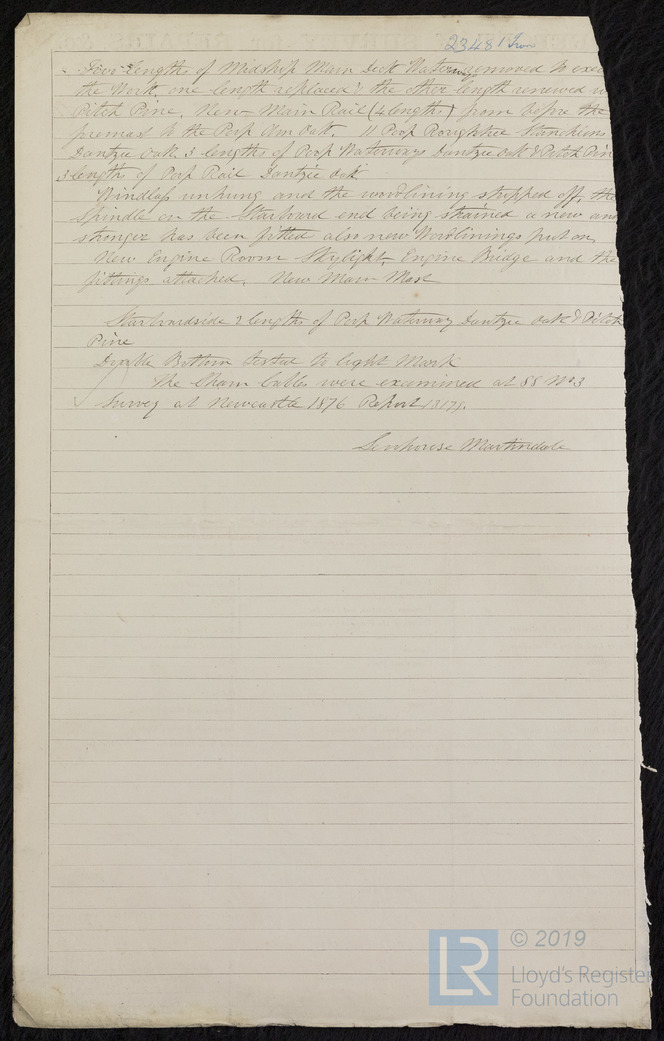 23481 Iron
Two lengths of Midship Main Deck Waterways removed to exe
the Work, one length replaced & the other length renewed w
Pitch Pine. New Main Rail (4 lengths) from before the
premast to the Poop Am Oak, 11 Poop Roughtree Stanchions
Dantzic Oak. 3 lengths of Poop Waterways Dantzic Oak & Pitch Pin
3 lengths of Poop Rail Dantzic Oak
Windlass unhung and the woodlining stripped off, the
Spindle on the Starboard end being strained a new and
stronger has been fitted also new Woodlinings put on,
New Engine Room Skylight, Engine Bridge and the
fittings attached. New Main Mast
Starboardside 2 lengths of Poop Waterway Dantzic Oak & Pitch
Pine
Double Bottom tested to light Mark
The Chain Cables were examined at SS No 3
Survey at Newcastle 1876 Report 13178.
Senhouse Martindale
LR © 2019
Lloyd's Register
Foundation